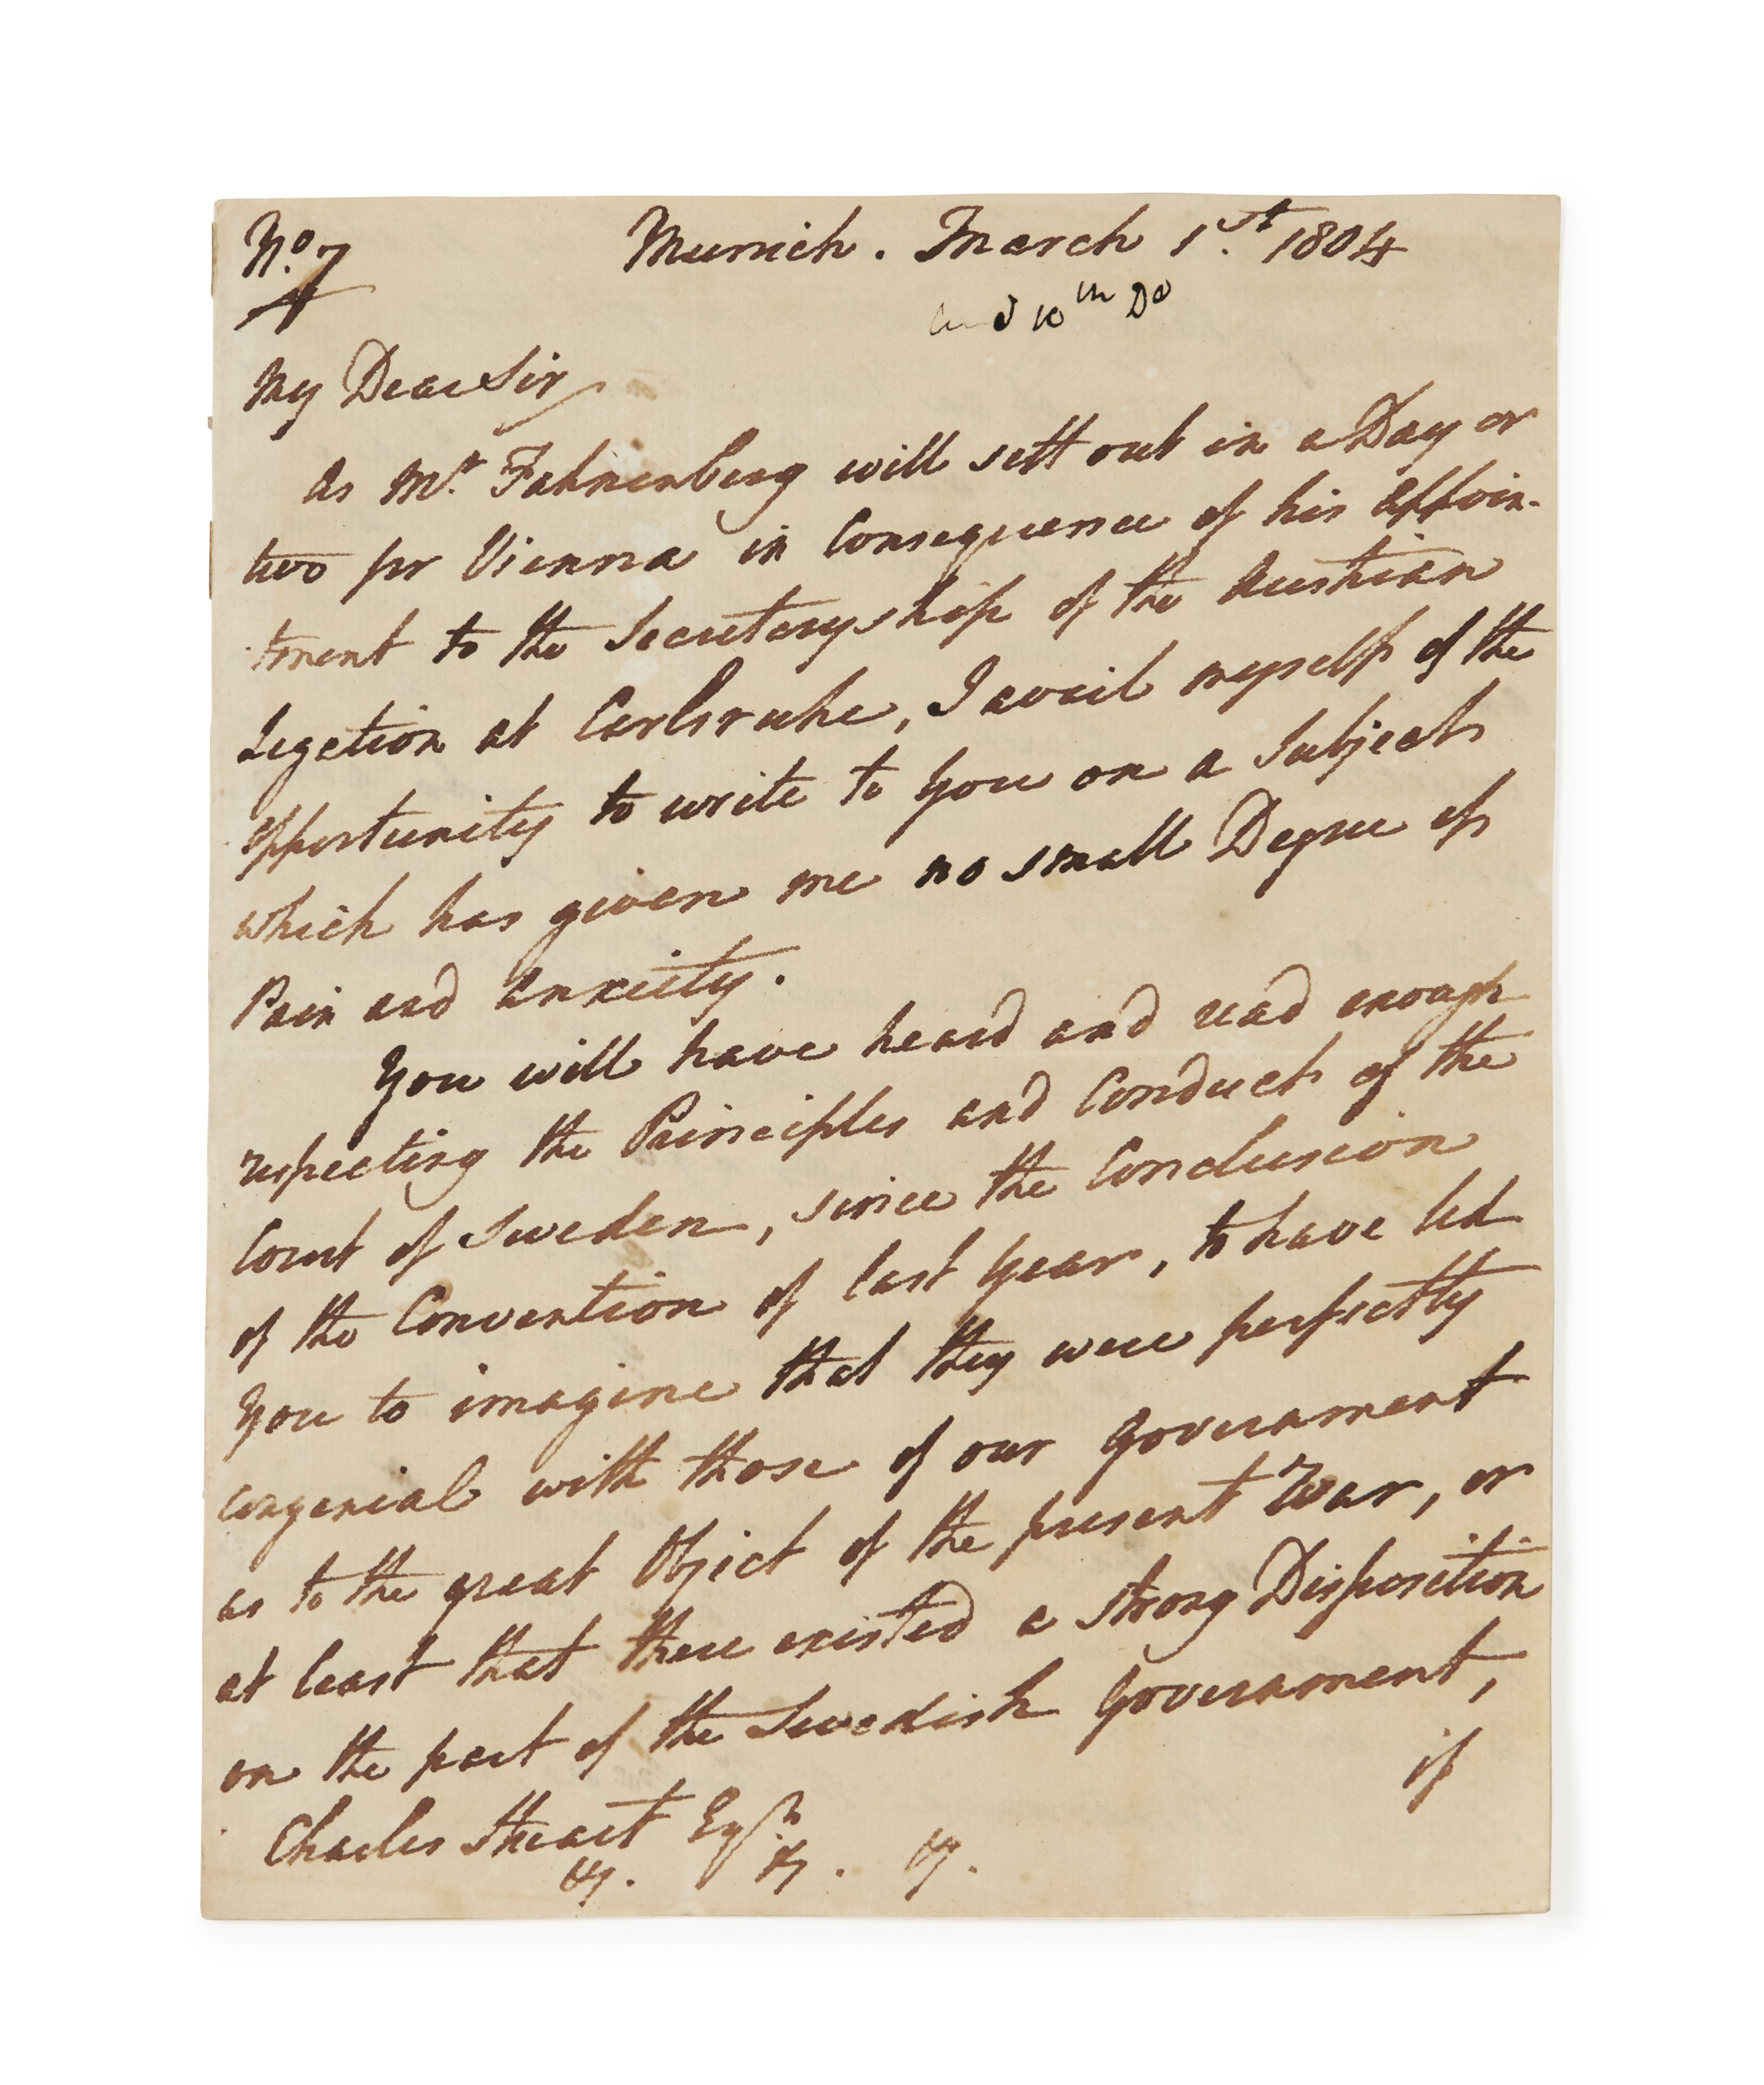 No. 7
Munich. March 1st. 1804
10th Do
My Dear Sir
As Mr. Fahnenberg will sett out in a Day or
two for Vienna in Consequence of his appoin-
tment to the Secretaryship of the Austrian
Legation at Carlsruhe, I avail myself of the
opportunity to write to you on a Subject
which has given me no small Degree of
Pain and Anxiety.
You will have heard and read enough
respecting the Principles and Conduct of the
Court of Sweden, since the Conclusion
of the Convention of last Year, to have led
you to imagine that they were perfectly
congenial with those of our Government
as to the great Object of the present War, or
at least that there existed a strong Disposition
on the part of the Swedish Government,
if
Charles Stuart Esqr.
&. &. &.